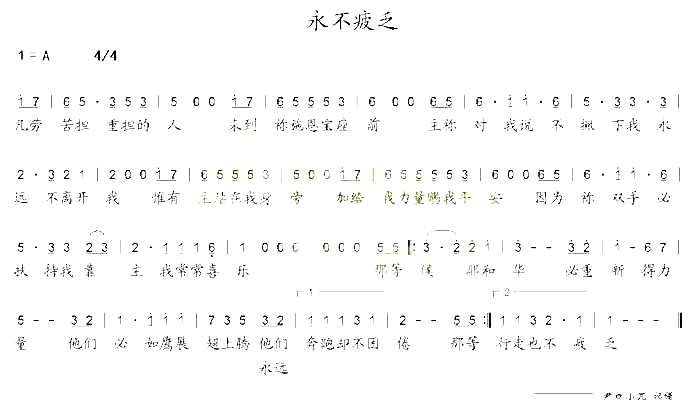 永不疲乏
1=A 4/4
1 7 | 6 5 · 3 5 3 | 5 0 0 1 7 | 6 5 5 5 3 | 6 0 0 6 5 | 6 · 1 1 · 6 | 5 · 3 3 · 3 |
凡劳 苦担 重担的 人 来到 祢施恩宝座 前 主祢 对 我说 不 撇 下我 永
2 · 3 2 1 | 2 0 0 1 7 | 6 5 5 5 3 | 5 0 0 1 7 | 6 5 5 5 3 | 6 0 0 6 5 | 6 · 1 1 · 6 |
远 不离开 我 惟有 主站在我身 旁 加给 我力量赐我平 安 因为 祢 双手 必
5 · 3 3 2 3 | 2 · 1 1 1 6 | 1 0 0 0 0 0 0 5 5 |: 3 · 2 2 1 | 3 - - 3 2 | 1 - 6 7 |
扶 待我 靠 主 我常常喜 乐 那等 候 耶和 华 必重 新 得力
1 2
5 - - 3 2 | 1 · 1 1 1 | 7 3 5 3 2 | 1 1 1 3 1 | 2 - - 5 5 :| 1 1 3 2 · | 1 - - - |
量 他们 必 如鹰展 翅上腾 他们 奔跑却不困 倦 那等 行走也不 疲 乏
永远